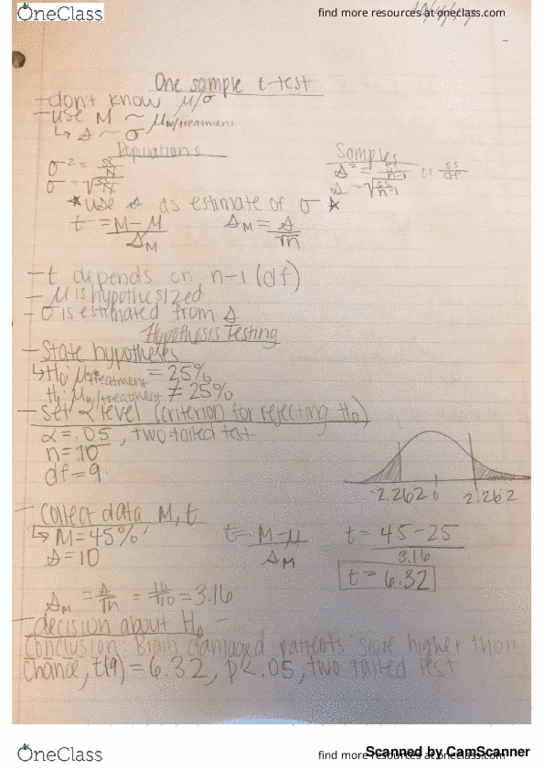 OneClass
find more resources at oneclass.com
One sample t-test
- don't know μ/σ
- use M ~ μ w/treatment
↳ s ~ σ
Populations
Samples
σ² = SS/N
s² = SS/n-1 or SS/df
σ = √SS/N
s = √SS/n-1
* use s as estimate of σ *
t = M-μ/sM
sM = s/√n
- t depends on n-1 (df)
- μ is hypothesized
- σ is estimated from s
Hypothesis Testing
- State hypotheses
↳ H₀: μ w/treatment = 25%
H₁: μ w/treatment ≠ 25%
- Set α level (criterion for rejecting H₀)
α = .05, two tailed test
n = 10
df = 9
-2.262 0 2.262
- Collect data M, t
↳ M = 45%
s = 10
t = M-μ/sM
t = 45-25/3.16
t = 6.32
sM = s/√n = 10/√10 = 3.16
- decision about H₀
Conclusion: Brain damaged patients score higher than
chance, t(9) = 6.32, p < .05, two tailed test
OneClass
find more resources at oneclass.com
Scanned by CamScanner